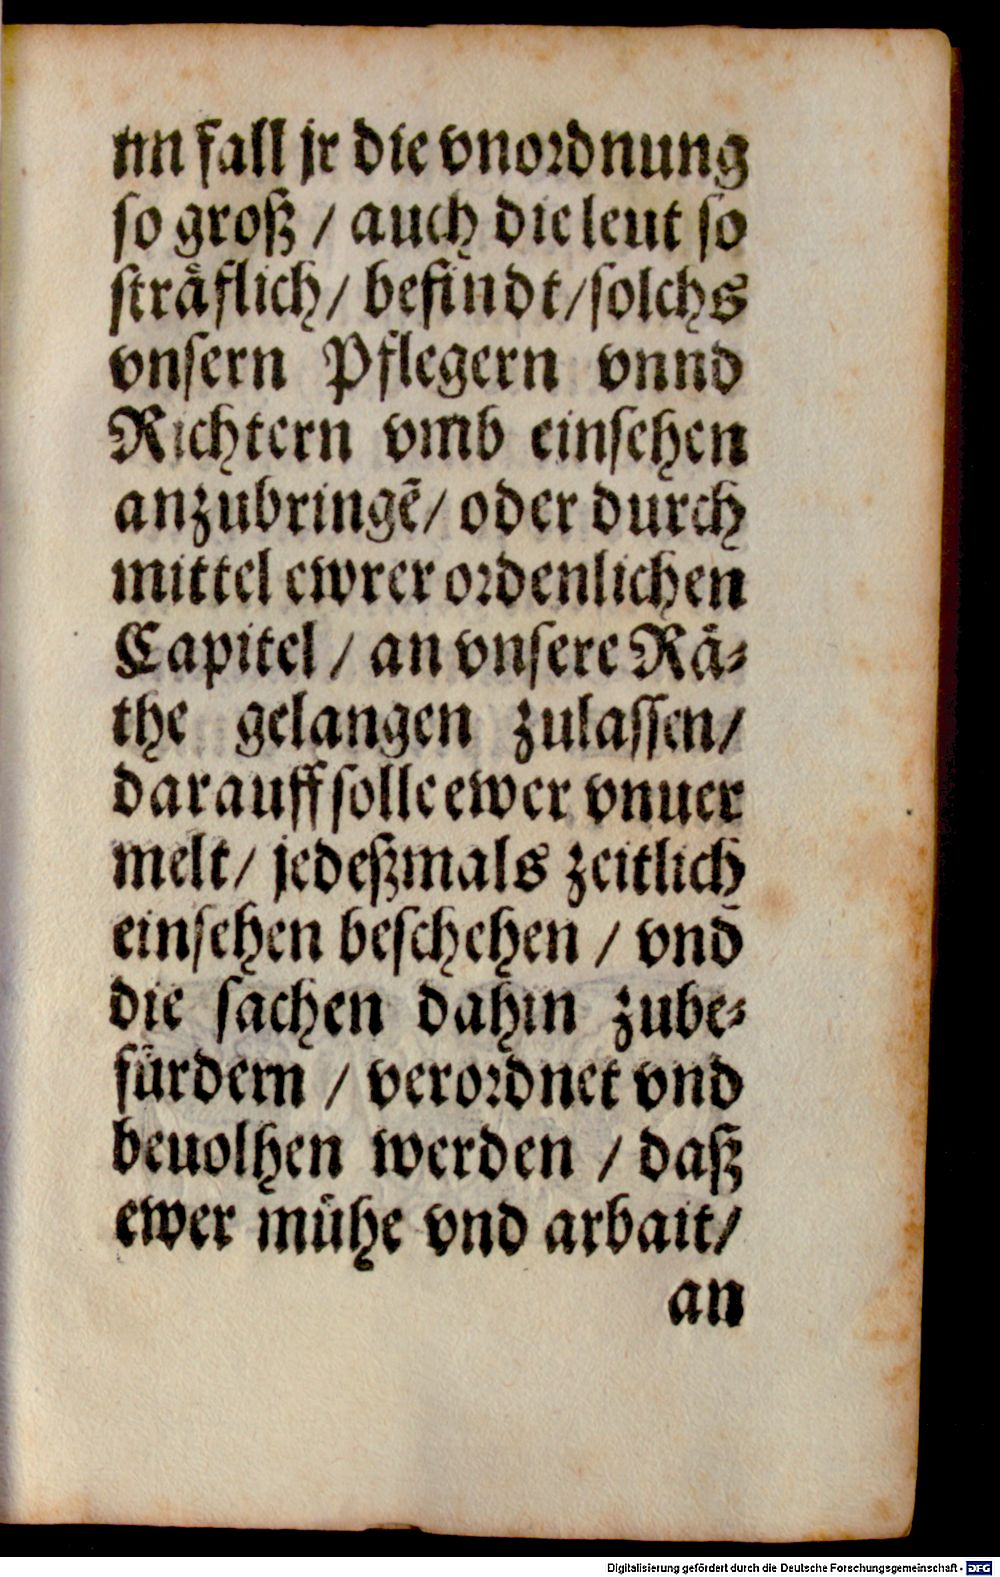 im fall jr die vnordnung
so groß / auch die leut so
sträflich / befindt / solchs
vnsern Pflegern vnnd
Richtern vmb einsehen
anzubringẽ / oder durch
mittel ewrer ordenlichen
Capitel / an vnsere Rä-
the gelangen zulassen /
darauff solle ewer vnuer
melt / jedeßmals zeitlich
einsehen beschehen / vnd
die sachen dahin zube-
fürdern / verordnet vnd
beuolhen werden / daß
ewer mühe vnd arbait /
an
Digitalisierung gefördert durch die Deutsche Forschungsgemeinschaft - DFG